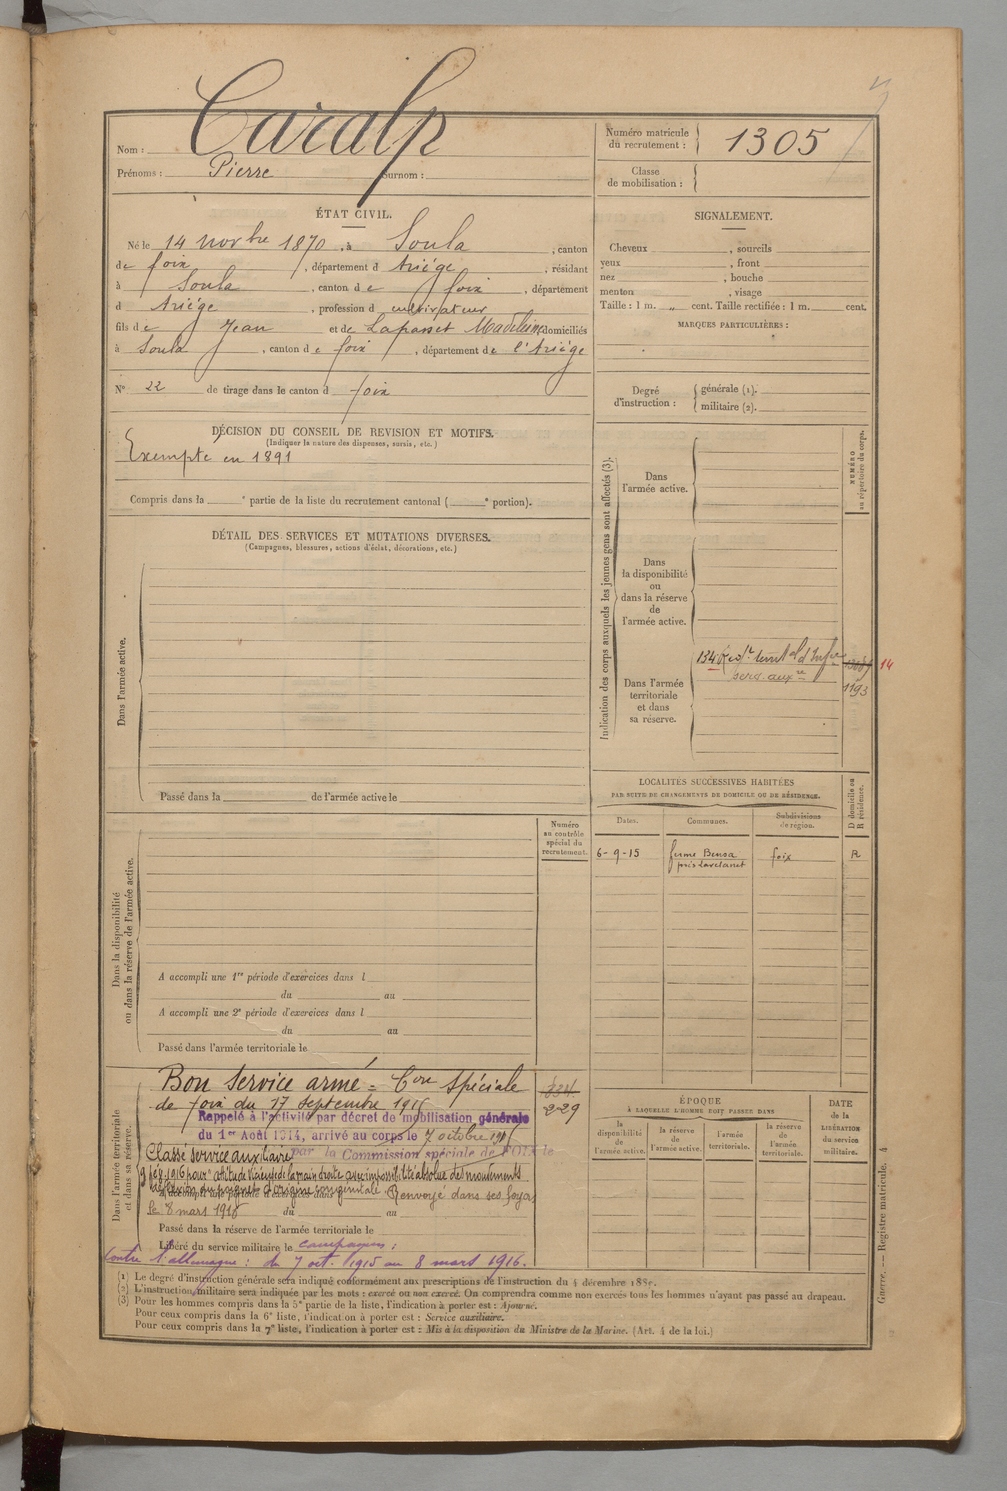 Nom : Caralp
Prénoms : Pierre Surnom :
Numéro matricule du recrutement : 1305
Classe de mobilisation :
ÉTAT CIVIL.
Né le 14 novbre 1870, à Soula, canton
de foix, département d Ariége, résidant
à Soula, canton de foix, département
d Ariége, profession de cultivateur
fils de Jean et de Lapasset Madeleine domiciliés
à Soula, canton de foix, département de l'Ariége
N° 22 de tirage dans le canton d foix
SIGNALEMENT.
Cheveux , sourcils
yeux , front
nez , bouche
menton , visage
Taille : 1 m. „ cent. Taille rectifiée : 1 m. cent.
MARQUES PARTICULIÈRES :
Degré d'instruction : générale (1).
militaire (2).
DÉCISION DU CONSEIL DE REVISION ET MOTIFS.
(Indiquer la nature des dispenses, sursis, etc.)
Exempté en 1891
Compris dans la e partie de la liste du recrutement cantonal ( e portion).
DÉTAIL DES SERVICES ET MUTATIONS DIVERSES.
(Campagnes, blessures, actions d'éclat, décorations, etc.)
Dans l'armée active.
Passé dans la de l'armée active le
Indication des corps auxquels les jeunes gens sont affectés (3).
NUMÉRO au répertoire du corps.
Dans l'armée active.
Dans la disponibilité ou dans la réserve de l'armée active.
Dans l'armée territoriale et dans sa réserve.
134e territ d'Infie
serv. auxre
1193
14
LOCALITÉS SUCCESSIVES HABITÉES
PAR SUITE DE CHANGEMENTS DE DOMICILE OU DE RÉSIDENCE.
D domicile ou R résidence.
Dates. Communes. Subdivisions de région.
6-9-15 ferme Bensa foix R
près Lavelanet
Dans la disponibilité ou dans la réserve de l'armée active.
Numéro au contrôle spécial du recrutement.
A accompli une 1re période d'exercices dans l
du au
A accompli une 2e période d'exercices dans l
du au
Passé dans l'armée territoriale le
Dans l'armée territoriale et dans sa réserve.
Bon service armé = Con Spéciale
de foix du 17 septembre 1915
229
Rappelé à l'activité par décret de mobilisation générale
du 1er Août 1914, arrivé au corps le 7 octobre 1915
Classé service auxiliaire par la Commission spéciale de FOIX le
9 fév 1916 pour attitude vicieuse de la main droite avec impossibilité absolue des mouvements
du poignet d'origine congénitale. Renvoyé dans ses foyers
A accompli une période d'exercices dans l
le 8 mars 1916 du au
Passé dans la réserve de l'armée territoriale le
Libéré du service militaire le
campagnes :
Contre l'allemagne : du 7 oct. 1915 au 8 mars 1916.
ÉPOQUE
À LAQUELLE L'HOMME DOIT PASSER DANS
la disponibilité de l'armée active. la réserve de l'armée active. l'armée territoriale. la réserve de l'armée territoriale.
DATE de la LIBÉRATION du service militaire.
(1) Le degré d'instruction générale sera indiqué conformément aux prescriptions de l'instruction du 4 décembre 188
(2) L'instruction militaire sera indiquée par les mots : exercé ou non exercé. On comprendra comme non exercés tous les hommes n'ayant pas passé au drapeau.
(3) Pour les hommes compris dans la 5e partie de la liste, l'indication à porter est : Ajourné.
Pour ceux compris dans la 6e liste, l'indication à porter est : Service auxiliaire.
Pour ceux compris dans la 7e liste, l'indication à porter est : Mis à la disposition du Ministre de la Marine. (Art. 4 de la loi.)
Guerre. — Registre matricule. 4